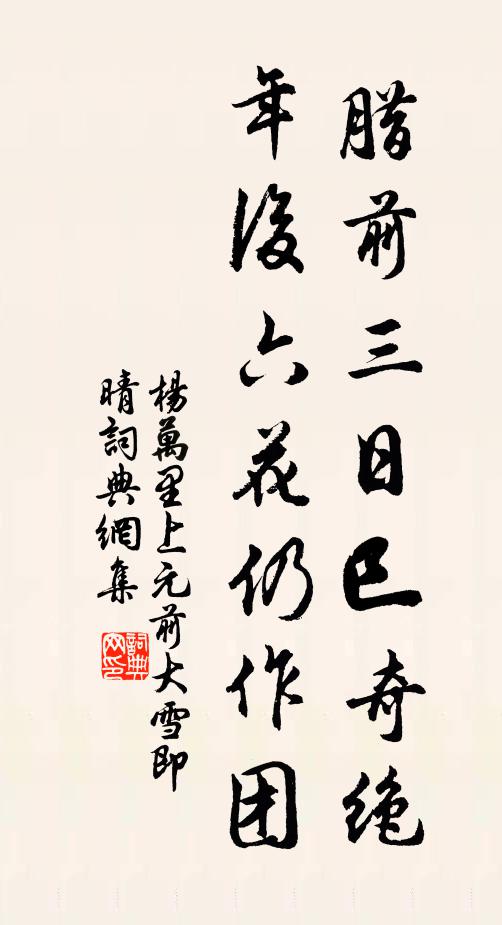 腊前三日已奇绝
年後六花仍作团
楊萬里上元前大雪即
晴詞典網集
詞典网印